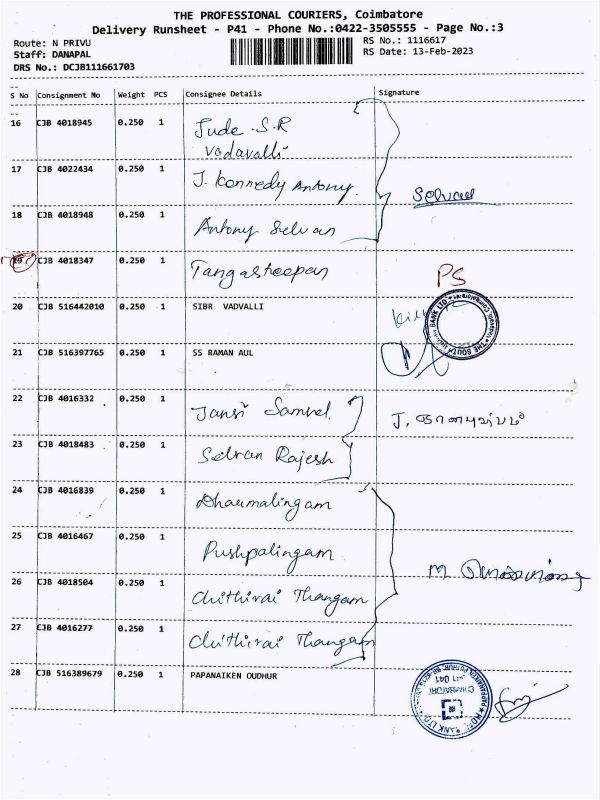 THE PROFESSIONAL COURIERS, Coimbatore
Delivery Runsheet - P41 - Phone No.:0422-3505555 - Page No.:3
Route: N PRIVU
RS No.: 1116617
Staff: DANAPAL
RS Date: 13-Feb-2023
DRS No.: DCJB111661703
S No Consignment No Weight PCS Consignee Details Signature
16 CJB 4018945 0.250 1 Jude S.R
Vadavalli
17 CJB 4022434 0.250 1 J. Kennedy Antony. Selvan
18 CJB 4018948 0.250 1 Antony Selvan
19 CJB 4018347 0.250 1 Tangasteepan PS
20 CJB 516442010 0.250 1 SIBR VADVALLI
BANK LTD. * THE SOUTH
21 CJB 516397765 0.250 1 SS RAMAN AUL
22 CJB 4016332 0.250 1 Jansi Samuel J.
23 CJB 4018483 0.250 1 Selvan Rajesh
24 CJB 4016839 0.250 1 Dharmalingam
25 CJB 4016467 0.250 1 Pushpalingam
26 CJB 4018504 0.250 1 Chithirai Thangam M
27 CJB 4016277 0.250 1 Chithirai Thangam
28 CJB 516389679 0.250 1 PAPANAIKEN OUDHUR
COIMBATORE
641 041
BANK LTD.